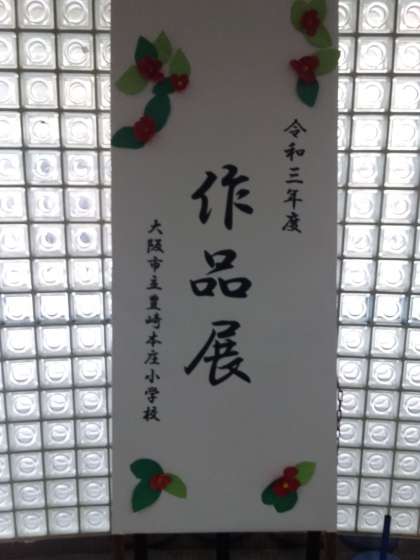 令和三年度
作品展
大阪市立豊崎本庄小学校